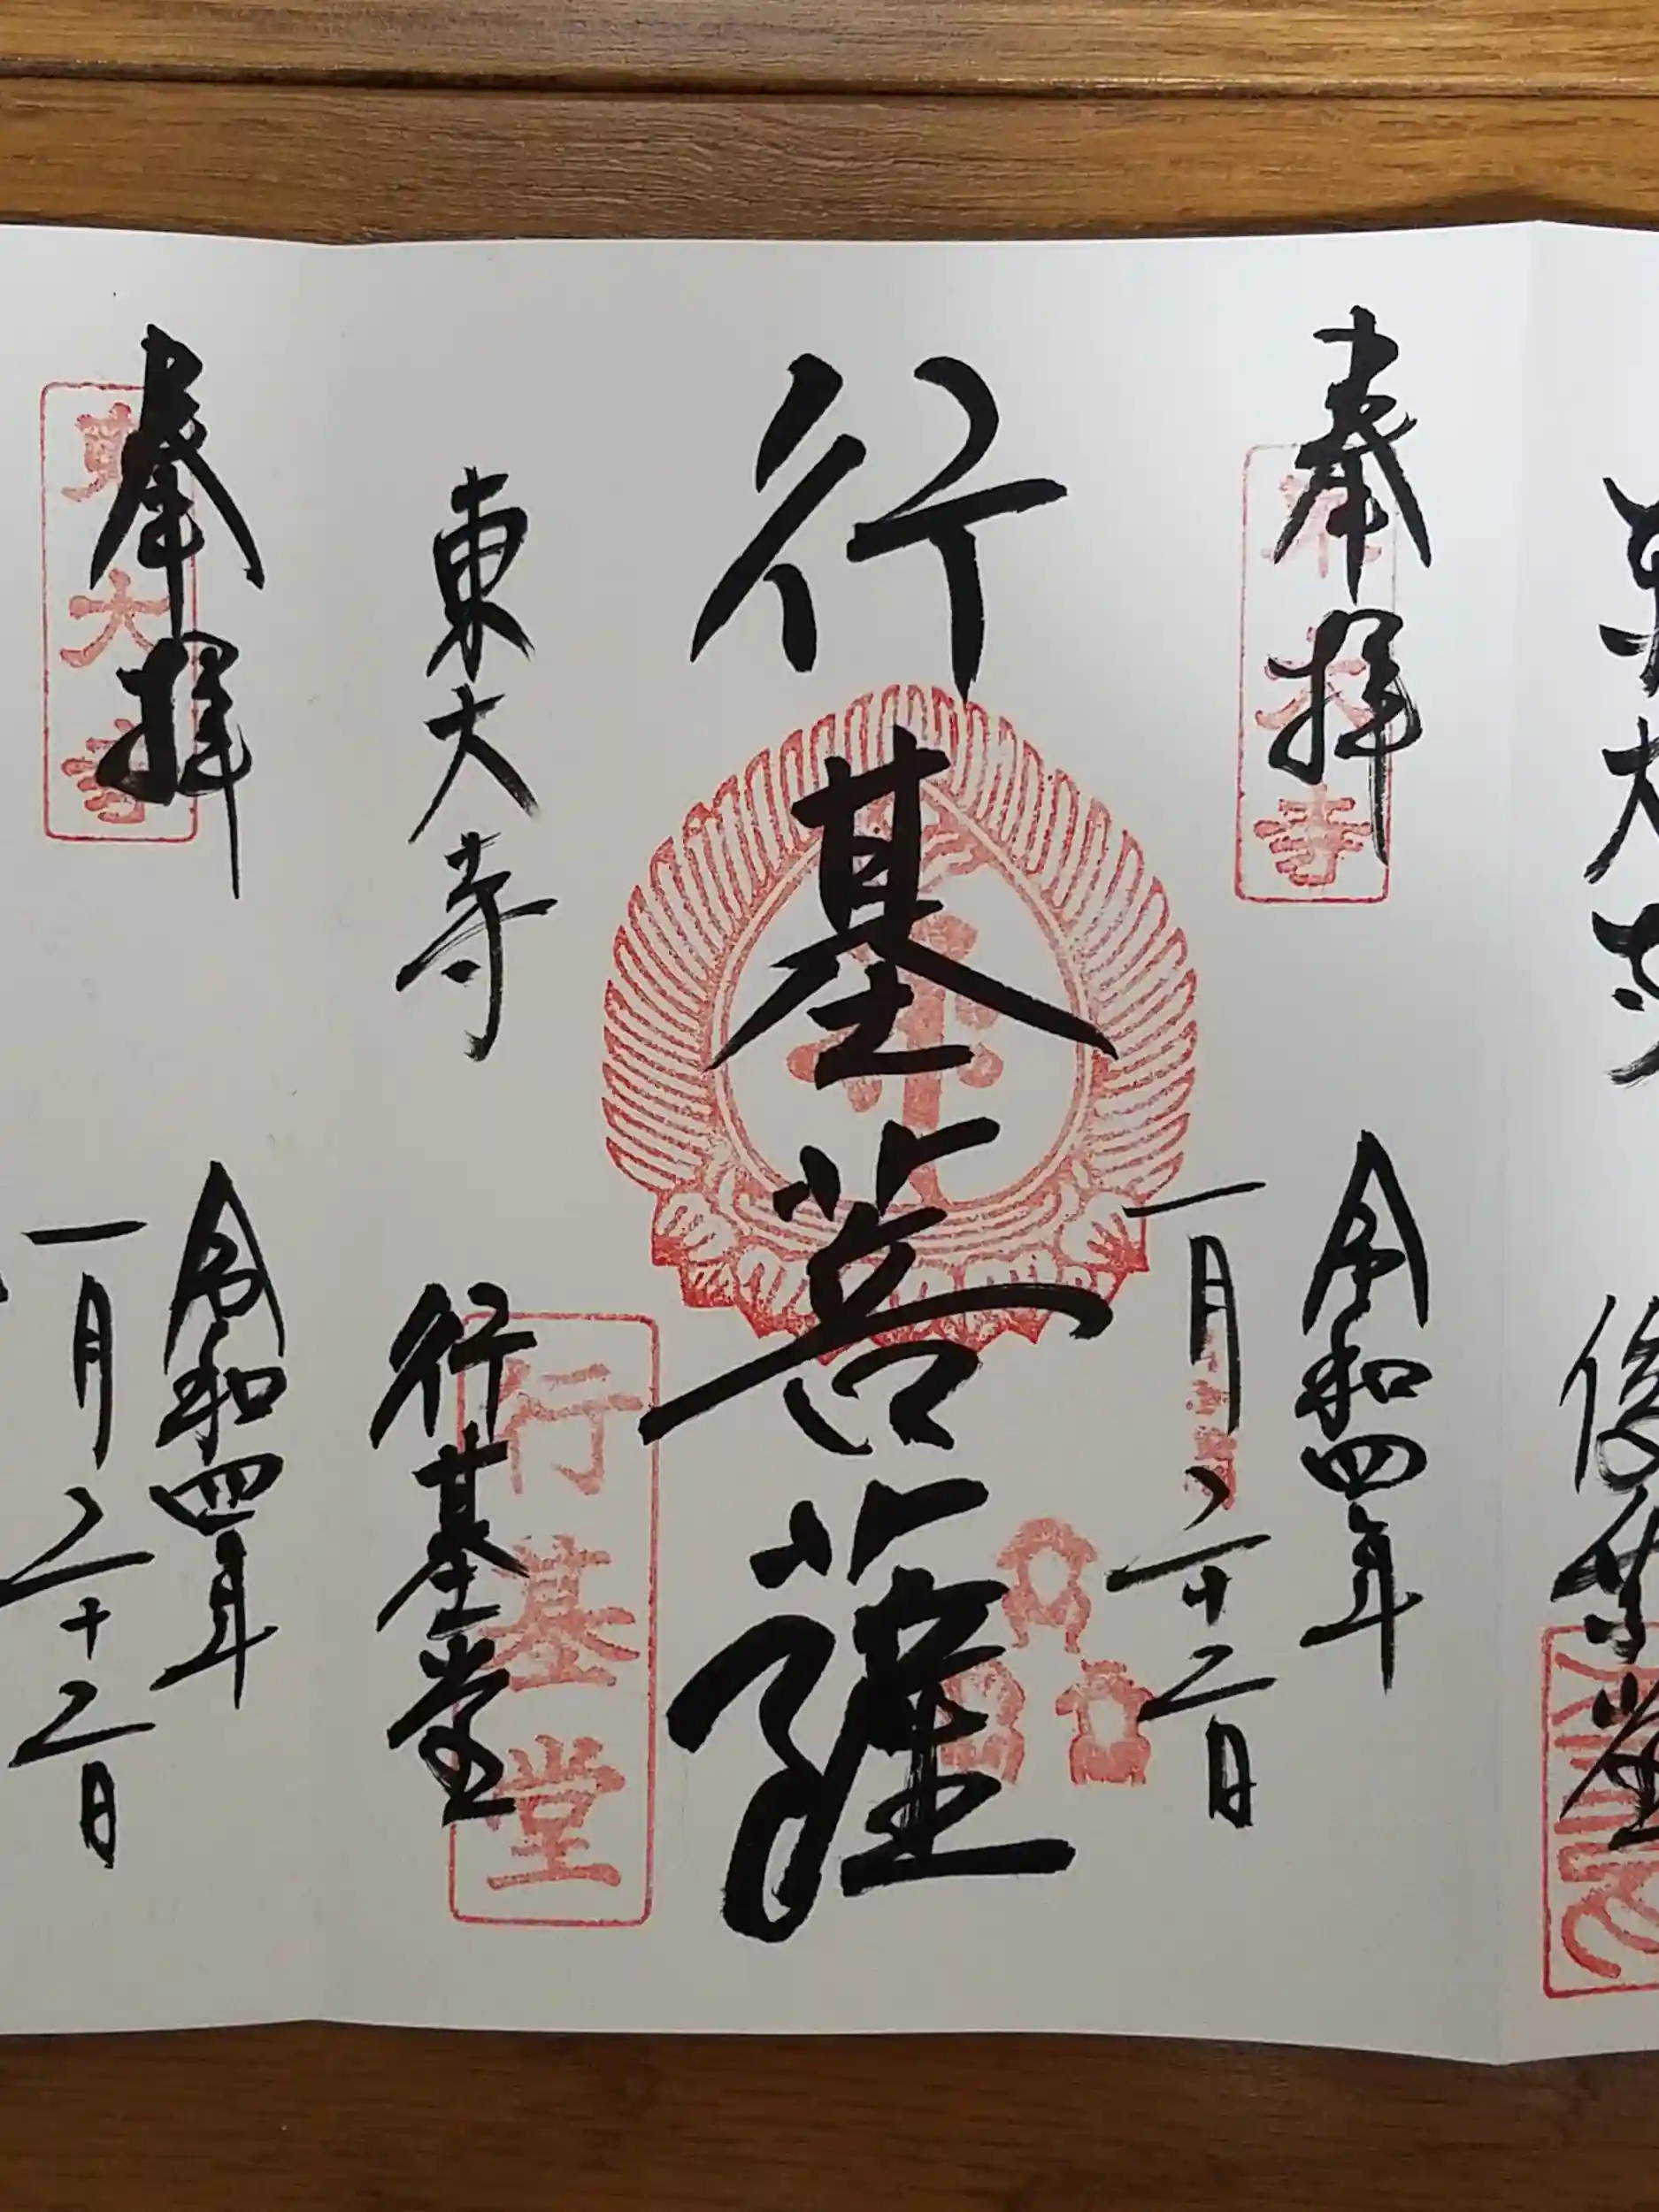 東大寺
俊乗堂
奉拝
令和四年
一月二十二日
東大寺
行基菩薩
東大寺
行基堂
行基堂
奉拝
令和四年
一月二十二日
東大寺